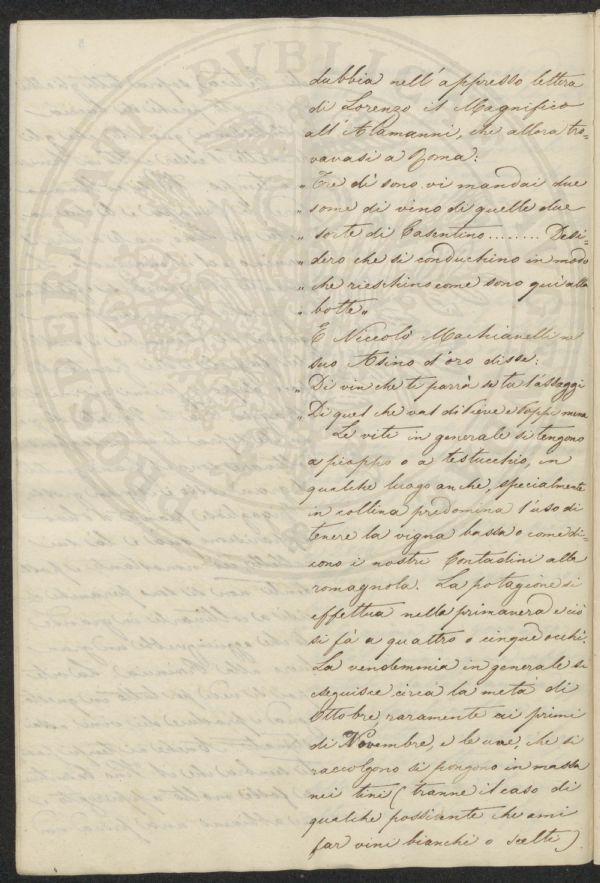 dubbia nell'appresso lettera
di Lorenzo il Magnifico
all'Alamanni, che allora tro=
vavasi a Roma:
„ Tre dì sono vi mandai due
„ some di vino di quelle due
„ sorte di Casentino........ Desi=
„ dero che si conduchino in modo
„ che rieschino come sono quì alla
„ botte „
E Niccolò Machiavelli n
suo Asino d'oro disse:
„ Di vin che ti parrà se tu l'assaggi
„ Di quel che val di Sieve e Poppi mena
Le vite in generale si tengono
a pioppo o a testucchio, in
qualche luogo anche, specialmente
in collina predomina l'uso di
tenere la vigna bassa o come di=
cono i nostri Contadini alla
romagnola. La potagione si
effettua nella primavera e ciò
si fà a quattro o cinque occhi.
La vendemmia in generale si
eseguisce circa la metà di
Ottobre raramente ai primi
di Novembre, e le uve, che si
raccolgono si pongono in massa
nei tini (tranne il caso di
qualche possidente che ami
far vini bianchi o scelte)
PROSPERITATI PVBLICAE